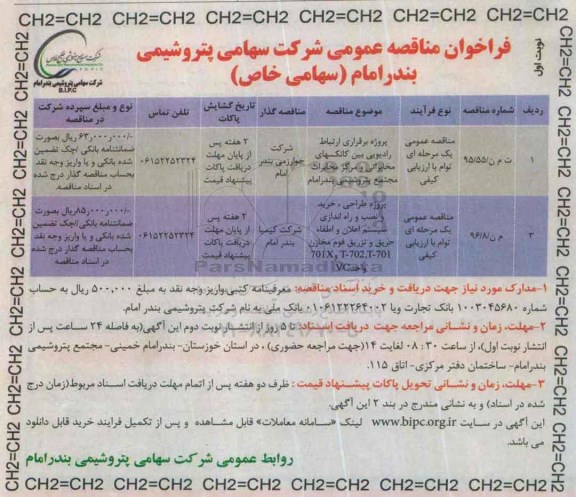 CH2=CH2 CH2=CH2 CH2=CH2 CH2=CH2 CH2=CH2 CH2=CH2
نوبت اول
فراخوان مناقصه عمومی شرکت سهامی پتروشیمی
بندرامام (سهامی خاص)
شرکت سهامی پتروشیمی بندرامام
B.I.P.C
ردیف شماره مناقصه نوع فرآیند موضوع مناقصه مناقصه گذار تاریخ گشایش پاکات تلفن تماس نوع و مبلغ سپرده شرکت در مناقصه
۱ ت م ن/۹۵/۵۵
مناقصه عمومی
یک مرحله ای
توام با ارزیابی
کیفی
پروژه برقراری ارتباط
رادیویی بین کانکسهای
مخابراتی و مرکز مخابرات
مجتمع پتروشیمی بندرامام
شرکت
خوارزمی بندر
امام
۲ هفته پس
از پایان مهلت
دریافت پاکات
پیشنهاد قیمت
۰۶۱۵۲۲۵۲۳۲۴
۶۳,۰۰۰,۰۰۰/- ریال بصورت
ضمانتنامه بانکی /چک تضمین
شده بانکی و یا واریز وجه نقد
بحساب مناقصه گذار درج شده
در اسناد مناقصه.
۲ م ن/۹۶/۸
مناقصه عمومی
یک مرحله ای
توام با ارزیابی
کیفی
پروژه طراحی ، خرید
و نصب و راه اندازی
سیستم اعلان و اطفاء
حریق و تزریق فوم مخازن
T-702,T-701 و 701X
واحد VC
شرکت کیمیا
بندر امام
۲ هفته پس
از پایان مهلت
دریافت پاکات
پیشنهاد قیمت
۰۶۱۵۲۲۵۲۳۲۴
۸۵,۰۰۰,۰۰۰/- ریال بصورت
ضمانتنامه بانکی/چک تضمین
شده بانکی و یا واریز وجه نقد
بحساب مناقصه گذار درج شده
در اسناد مناقصه
ParsNamadData
۱-مدارک مورد نیاز جهت دریافت و خرید اسناد مناقصه: معرفینامه کتبی-واریز وجه نقد به مبلغ ۵۰۰,۰۰۰ ریال به حساب
شماره ۱۰۰۳۰۴۵۶۸۰ بانک تجارت ویا ۰۱۰۶۱۲۲۲۶۴۰۰۲ بانک ملی به نام شرکت پتروشیمی بندر امام.
۲-مهلت، زمان و نشانی مراجعه جهت دریافت اسناد: تا ۵ روز از انتشار نوبت دوم این آگهی(به فاصله ۲۴ ساعت پس از
انتشار نوبت اول)، از ساعت ۳۰ : ۰۸ لغایت ۱۴(جهت مراجعه حضوری) ، در استان خوزستان- بندرامام خمینی- مجتمع پتروشیمی
بندرامام- ساختمان دفتر مرکزی- اتاق ۱۱۵.
۳-مهلت، زمان و نشانی تحویل پاکات پیشنهاد قیمت : ظرف دو هفته پس از اتمام مهلت دریافت اسناد مربوط(زمان درج
شده در اسناد) و به نشانی مندرج در بند ۲ این آگهی.
این آگهی در سایت www.bipc.org.ir لینک «سامانه معاملات» قابل مشاهده و پس از تکمیل فرایند خرید قابل دانلود
می باشد.
روابط عمومی شرکت سهامی پتروشیمی بندرامام
CH2=CH2 CH2=CH2 CH2=CH2 CH2=CH2 CH2=CH2 CH2=CH2